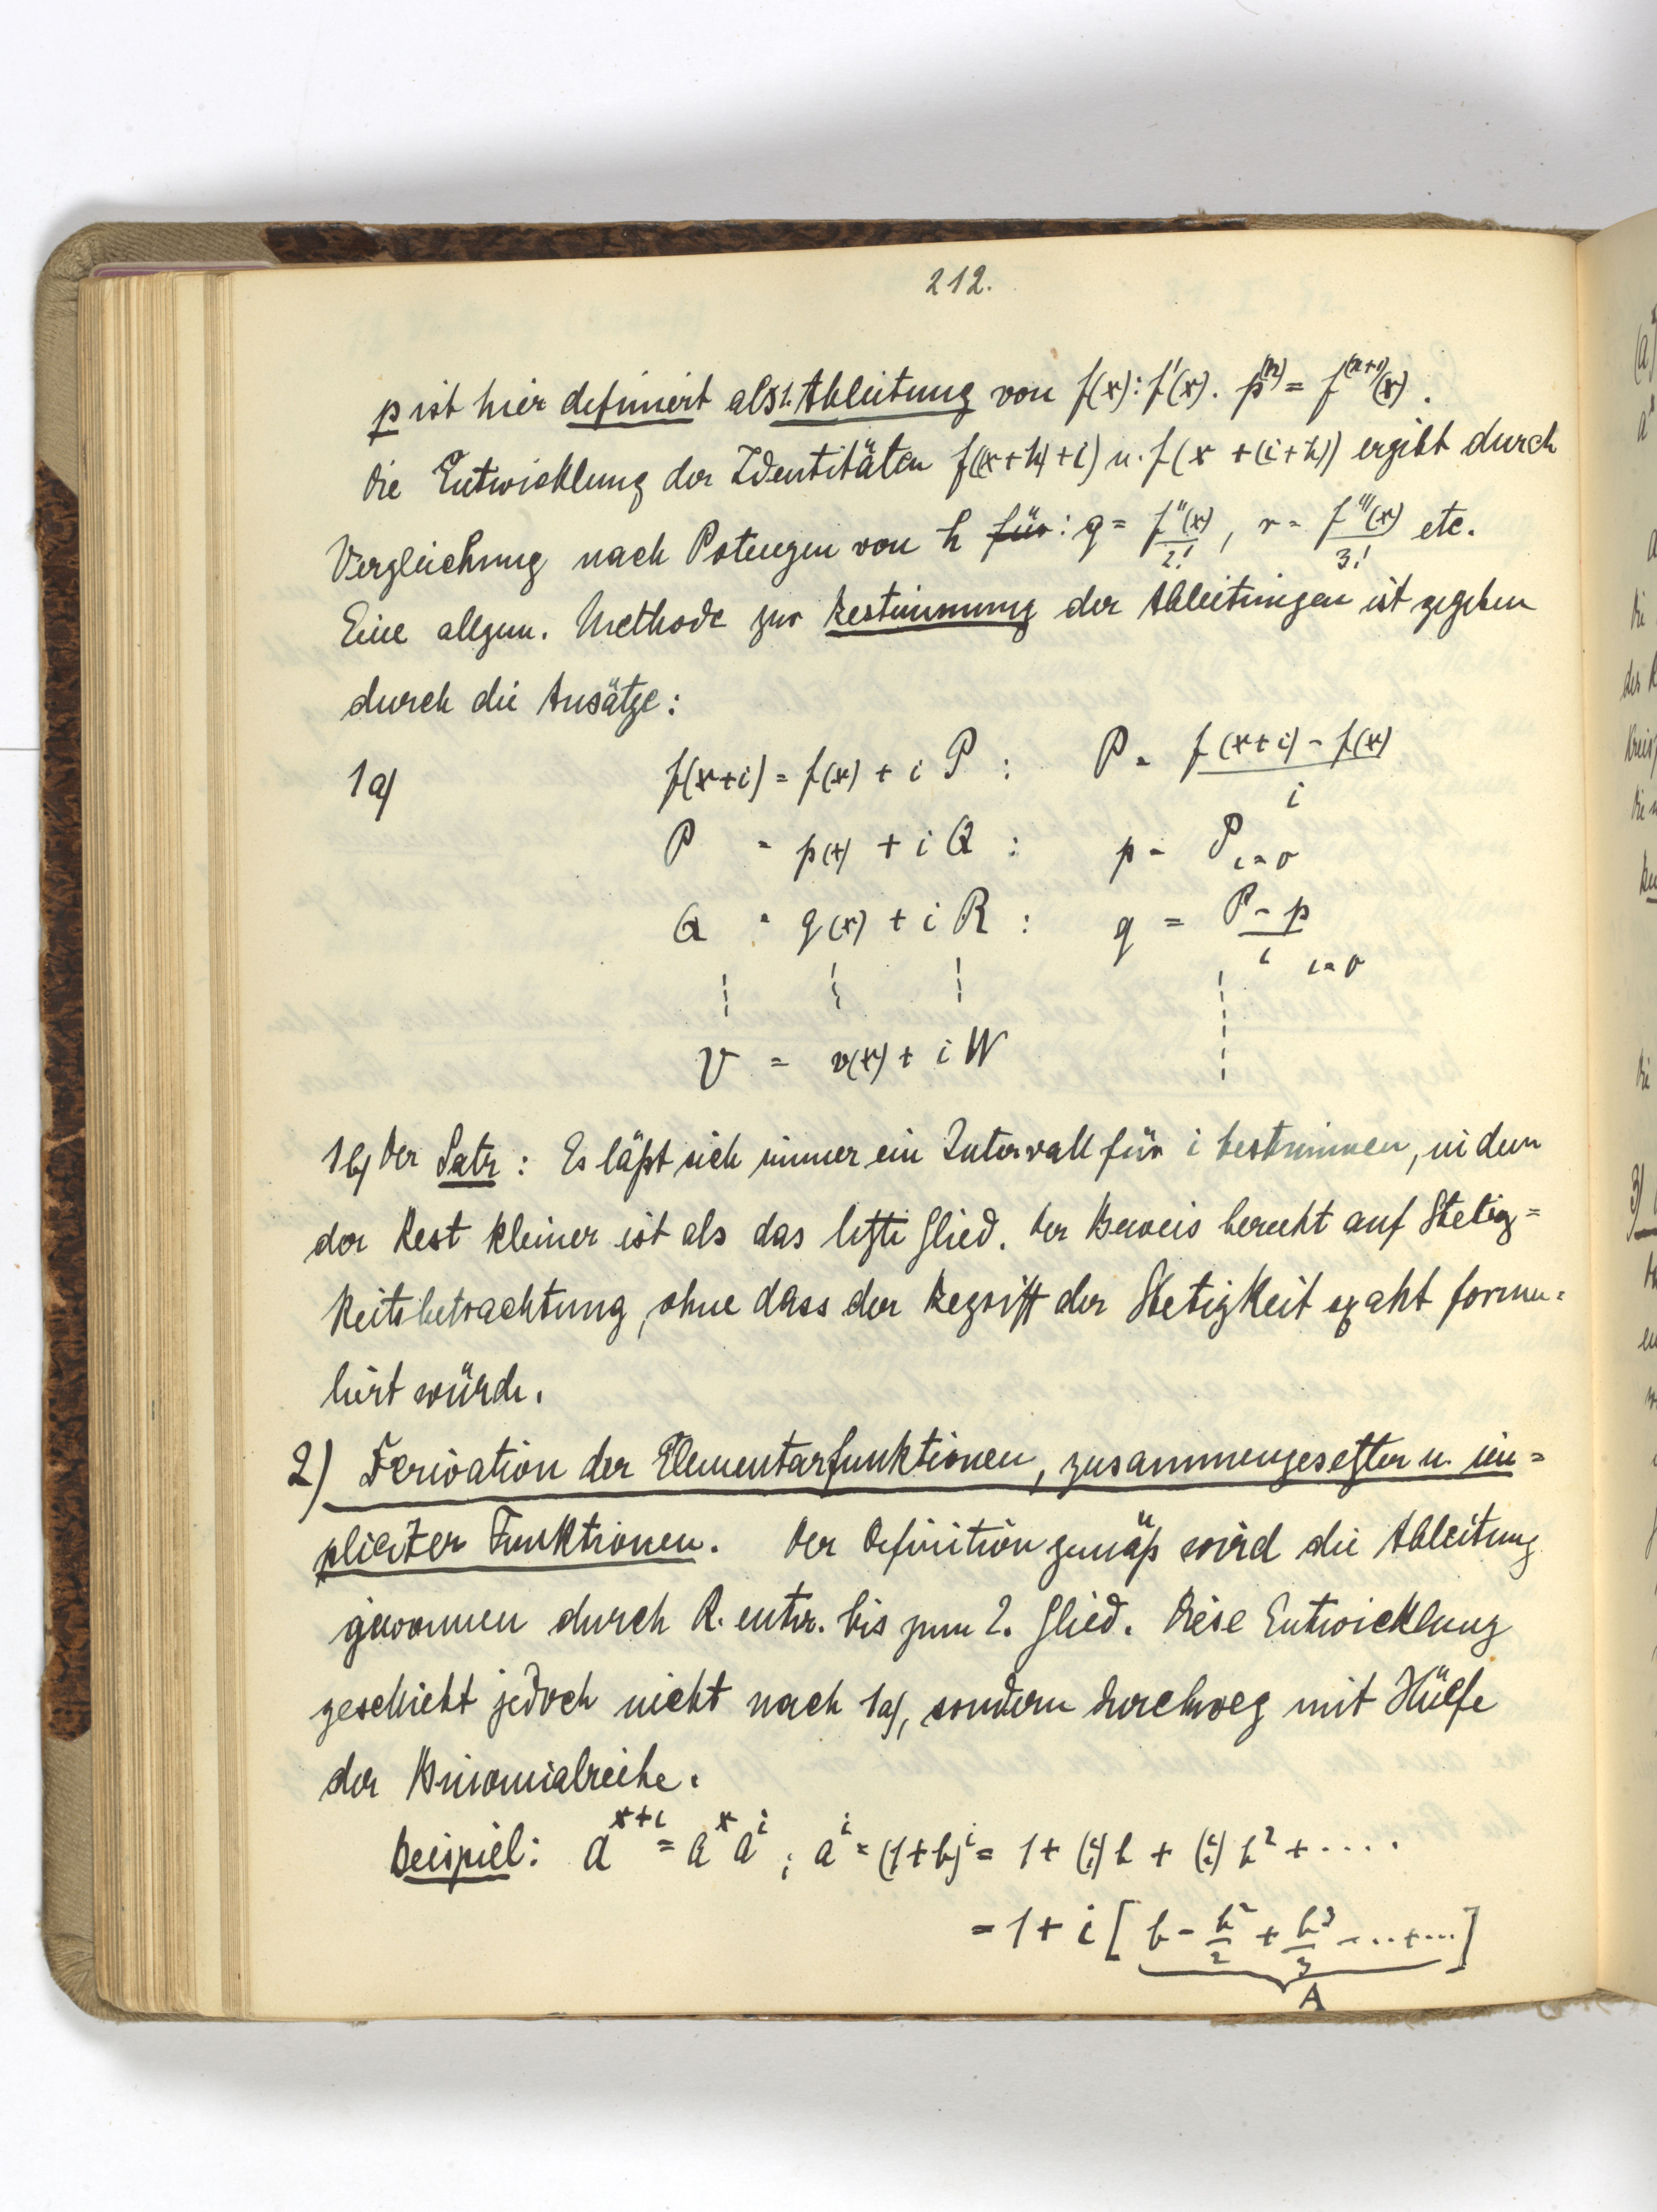 212.
p ist hier definiert als 1. Ableitung von f(x): f'(x). p^(n) = f^(n+1)(x).
Die Entwicklung der Identitäten f((x+h)+i) u. f(x+(i+h)) ergibt durch
Vergleichung nach Potenzen von h für: q = f''(x)/2!, r = f'''(x)/3! etc.
Eine allgem. Methode zur Bestimmung der Ableitungen ist gegeben
durch die Ansätze:
1a) f(x+i) = f(x) + i P : P = (f(x+i) - f(x))/i
P = p(x) + i Q : p = P i=0
Q = q(x) + i R : q = (P-p)/i i=0
V = v(x) + i W
1b) Der Satz: Es läßt sich immer ein Intervall für i bestimmen, in dem
der Rest kleiner ist als das letzte Glied. Der Beweis beruht auf Stetig=
keitsbetrachtung, ohne dass der Begriff der Stetigkeit exakt formu=
liert würde.
2) Derivation der Elementarfunktionen, zusammengesetzter u. im=
pliciter Funktionen. Der Definition gemäß wird die Ableitung
gewonnen durch R. entw. bis zum 2. Glied. Diese Entwicklung
geschieht jedoch nicht nach 1a), sondern durchweg mit Hülfe
der Binomialreihe.
Beispiel: a^(x+i) = a^x a^i ; a^i = (1+b)^i = 1 + (i 1) b + (i 2) b² + ....
= 1 + i [b - b²/2 + b³/3 - ..+...]
A